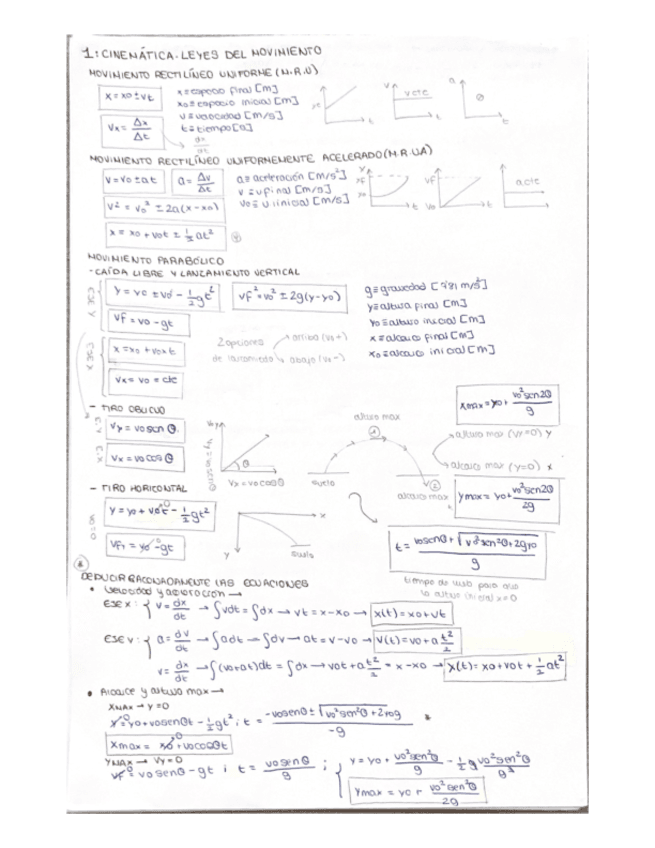 1: CINEMÁTICA. LEYES DEL MOVIMIENTO
MOVIMIENTO RECTILÍNEO UNIFORME (M.R.U)
x = xo ± vt
x ≡ espacio final [m]
xo ≡ espacio inicial [m]
v ≡ velocidad [m/s]
t ≡ tiempo [s]
Vx = Δx/Δt
dx/dt
v cte
MOVIMIENTO RECTILÍNEO UNIFORMEMENTE ACELERADO (M.R.UA)
v = vo ± at
a = Δv/Δt
a ≡ aceleración [m/s²]
v ≡ v final [m/s]
vo ≡ v inicial [m/s]
v² = vo² ± 2a(x - xo)
x = xo + vot ± ½at²
a cte
MOVIMIENTO PARABÓLICO
- CAÍDA LIBRE Y LANZAMIENTO VERTICAL
EJE Y
y = vo ± vo - ½gt²
vf² = vo² ± 2g(y-yo)
vf = vo - gt
g ≡ gravedad [9'81 m/s²]
y ≡ altura final [m]
yo ≡ altura inicial [m]
x ≡ alcance final [m]
xo ≡ alcance inicial [m]
2 opciones de lanzamiento
arriba (vo +)
abajo (vo -)
EJE X
x = xo + voxt
Vx = vo = cte
- TIRO OBLICUO
E.Y
Vy = vo sen θ
E.X
Vx = vo cos θ
Vy = vo sen θ
Vx = vo cos θ
altura max
suelo
alcance max
xmax = yo + vo² sen 2θ/g
altura max (Vy=0) y
alcance max (y=0) x
ymax = yo + vo² sen 2θ/2g
- TIRO HORIZONTAL
y = yo + vot - ½gt²
vfy = vo - gt
suelo
t = vo sen θ + √vo² sen² θ + 2gyo/g
DEDUCIR RAZONADAMENTE LAS ECUACIONES
• Velocidad y aceleración →
EJE X: { v = dx/dt → ∫vdt = ∫dx → vt = x - xo → x(t) = xo + vt
EJE v: { a = dv/dt → ∫adt → ∫dv → at = v - vo → v(t) = vo + a t²/2
v = dx/dt → ∫(vo+at)dt = ∫dx → vot + a t²/2 = x - xo → x(t) = xo + vot + ½at²
• Alcance y altura max →
XMAX → y = 0
y = yo + vo sen θt - ½gt² ; t = -vo sen θ ± √vo² sen² θ + 2yog/-g *
xmax = xo + vo cos θt
YMAX → Vy = 0
vf = vo sen θ - gt ; t = vo sen θ/g ; { y = yo + vo² sen² θ/g - ½g vo² sen² θ/g²
ymax = yo + vo² sen² θ/2g